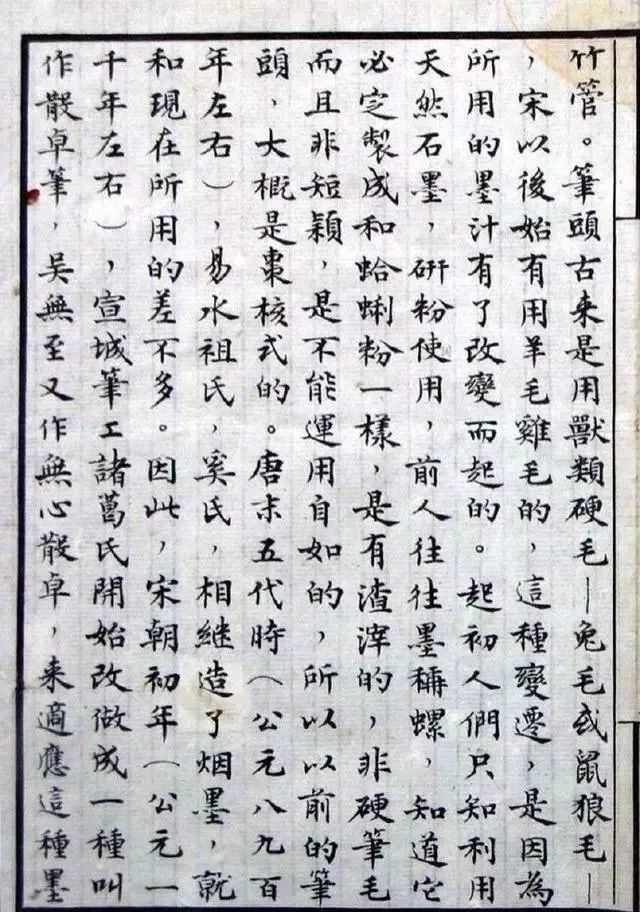 竹管。筆頭古来是用獸類硬毛—兔毛或鼠狼毛—
，宋以後始有用羊毛雞毛的，這種變遷，是因為
所用的墨汁有了改變而起的。起初人們只知利用
天然石墨，研粉使用，前人往往墨稱螺，知道它
必定製成和蛤蜊粉一樣，是有渣滓的，非硬筆毛
而且非短穎，是不能運用自如的，所以以前的筆
頭，大概是棗核式的。唐末五代時（公元八九百
年左右），易水祖氏，奚氏，相繼造了烟墨，就
和現在所用的差不多。因此，宋朝初年（公元一
千年左右），宣城筆工諸葛氏開始改做成一種叫
作散卓筆，吳無至又作無心散卓，来適應這種墨